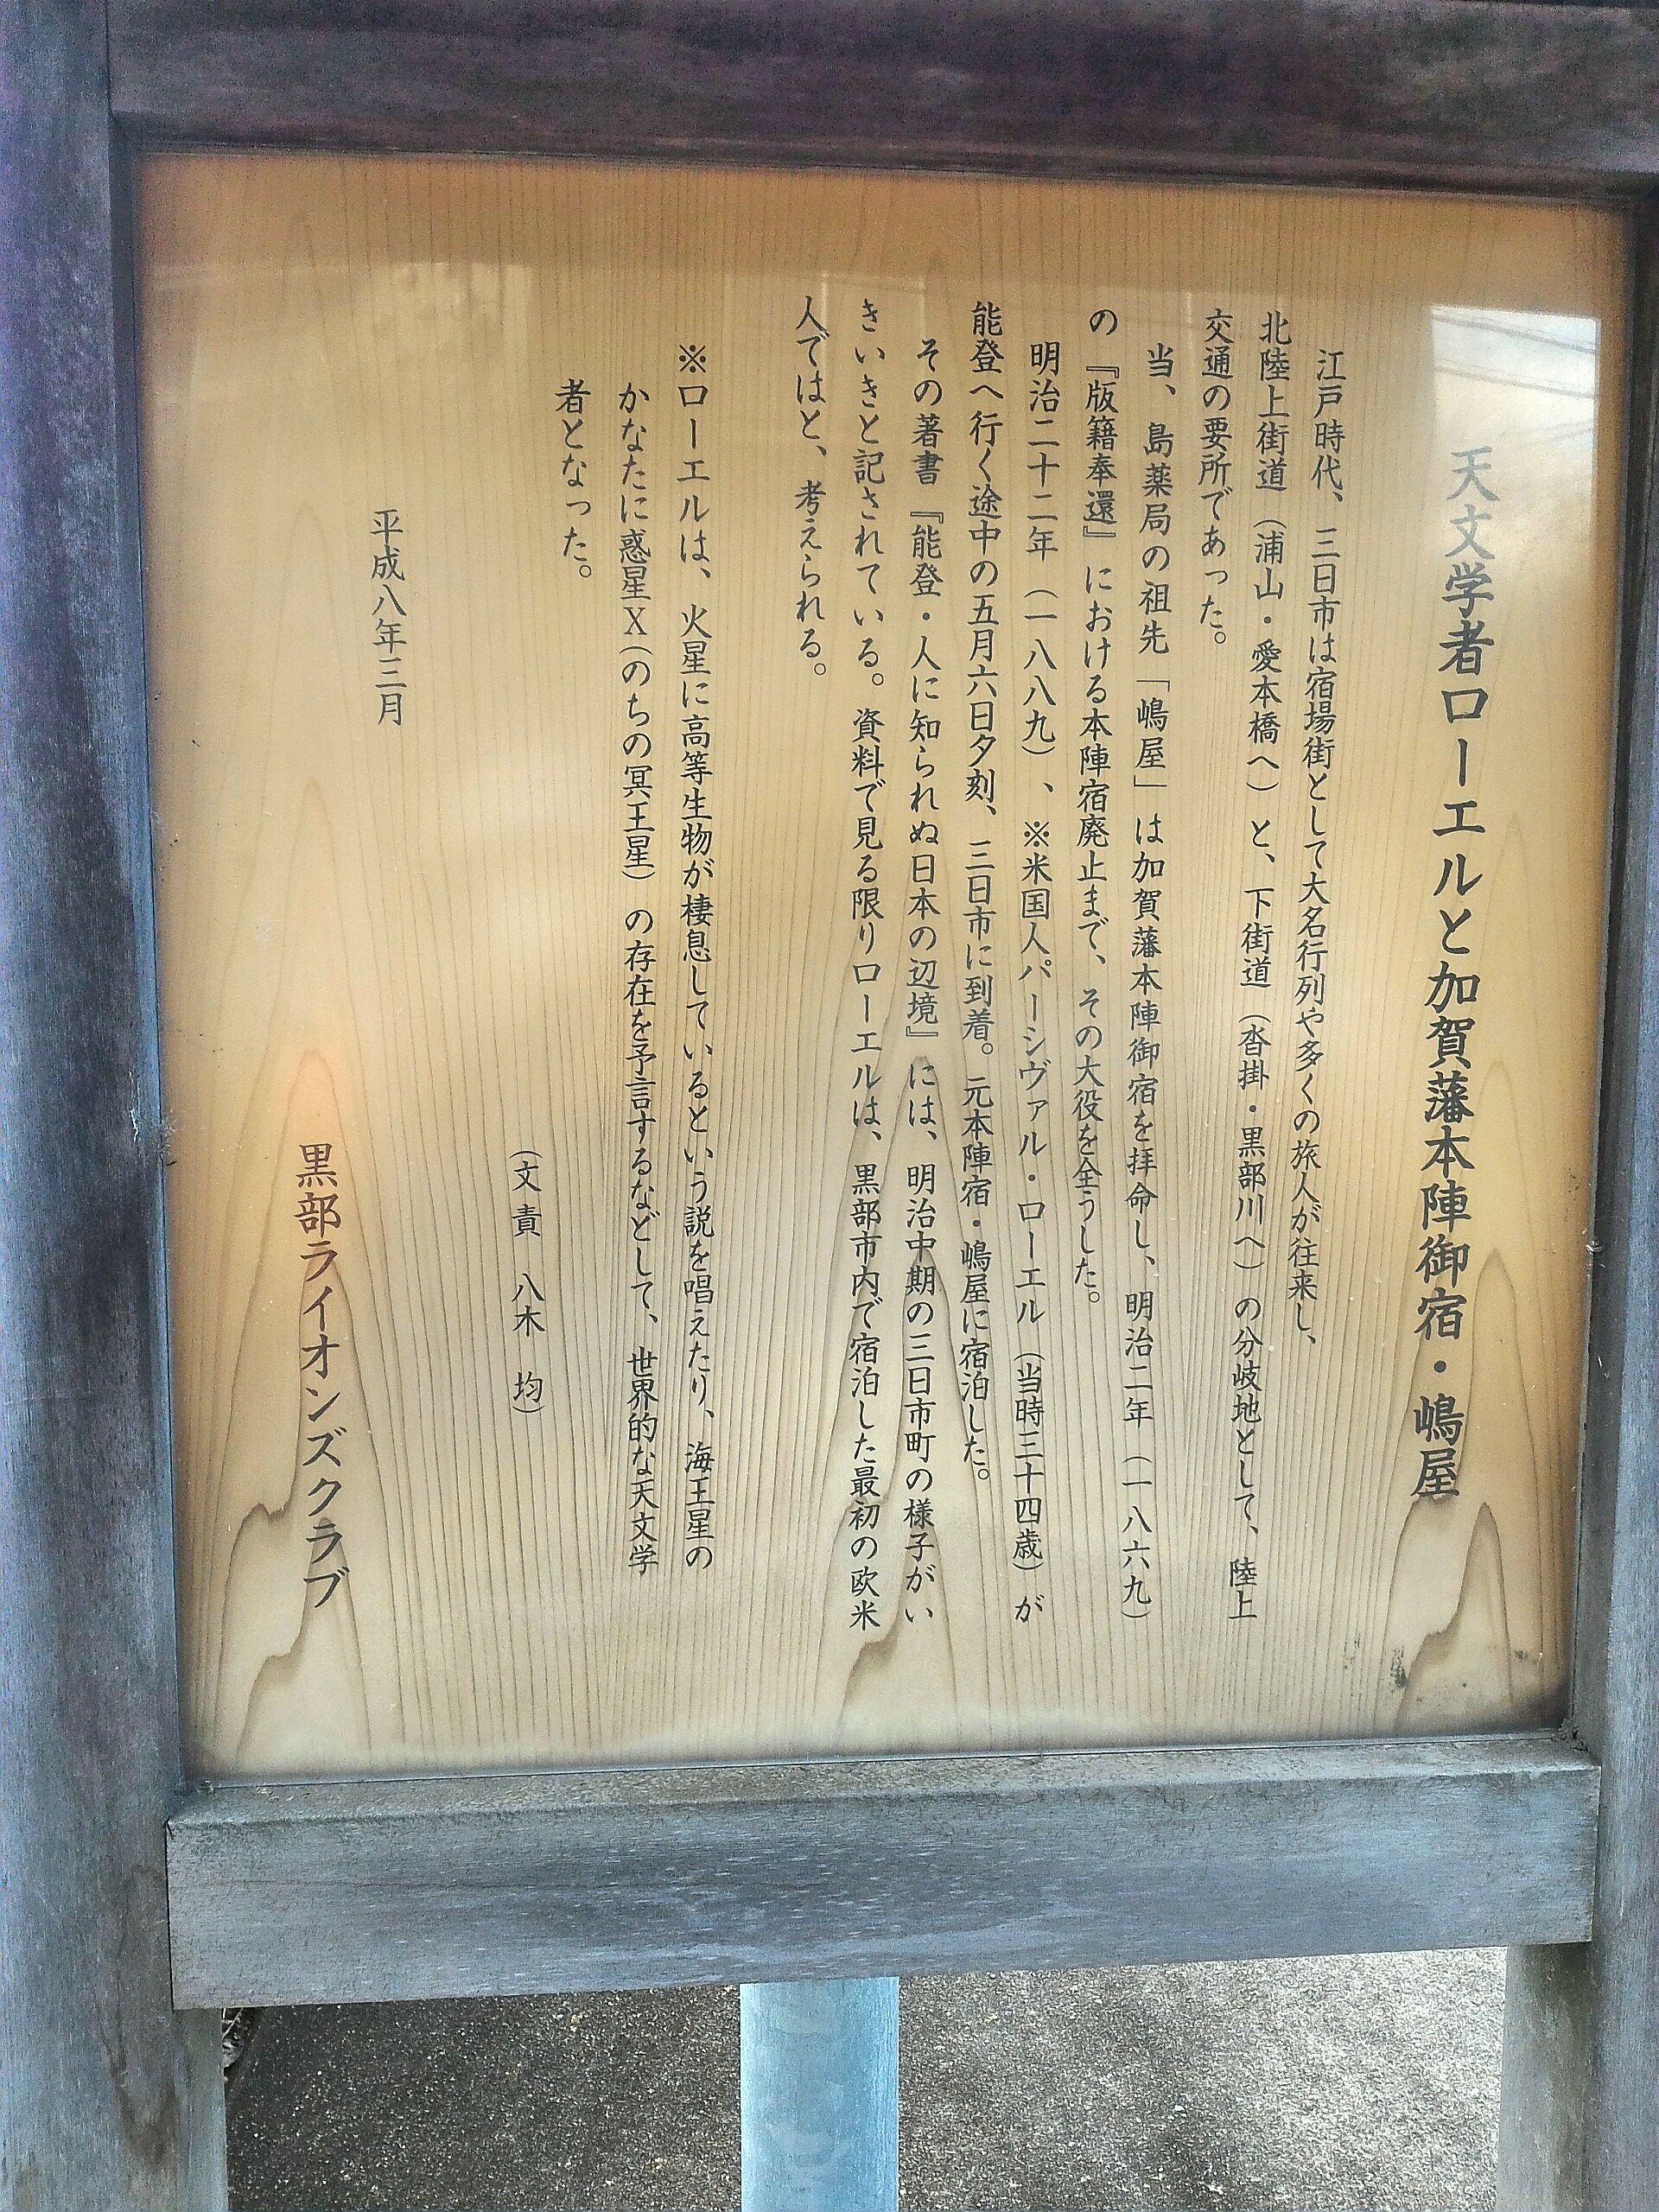 天文学者ローエルと加賀藩本陣御宿・嶋屋
江戸時代、三日市は宿場街として大名行列や多くの旅人が往来し、
北陸上街道（浦山・愛本橋へ）と、下街道（沓掛・黒部川へ）の分岐地として、陸上
交通の要所であった。
当、島薬局の祖先「嶋屋」は加賀藩本陣御宿を拝命し、明治二年（一八六九）
の『版籍奉還』における本陣宿廃止まで、その大役を全うした。
明治二十二年（一八八九）、※米国人パーシヴァル・ローエル（当時三十四歳）が
能登へ行く途中の五月六日夕刻、三日市に到着。元本陣宿・嶋屋に宿泊した。
その著書『能登・人に知られぬ日本の辺境』には、明治中期の三日市町の様子がい
きいきと記されている。資料で見る限りローエルは、黒部市内で宿泊した最初の欧米
人ではと、考えられる。
※ローエルは、火星に高等生物が棲息しているという説を唱えたり、海王星の
かなたに惑星X（のちの冥王星）の存在を予言するなどして、世界的な天文学
者となった。
（文責 八木 均）
平成八年三月
黒部ライオンズクラブ